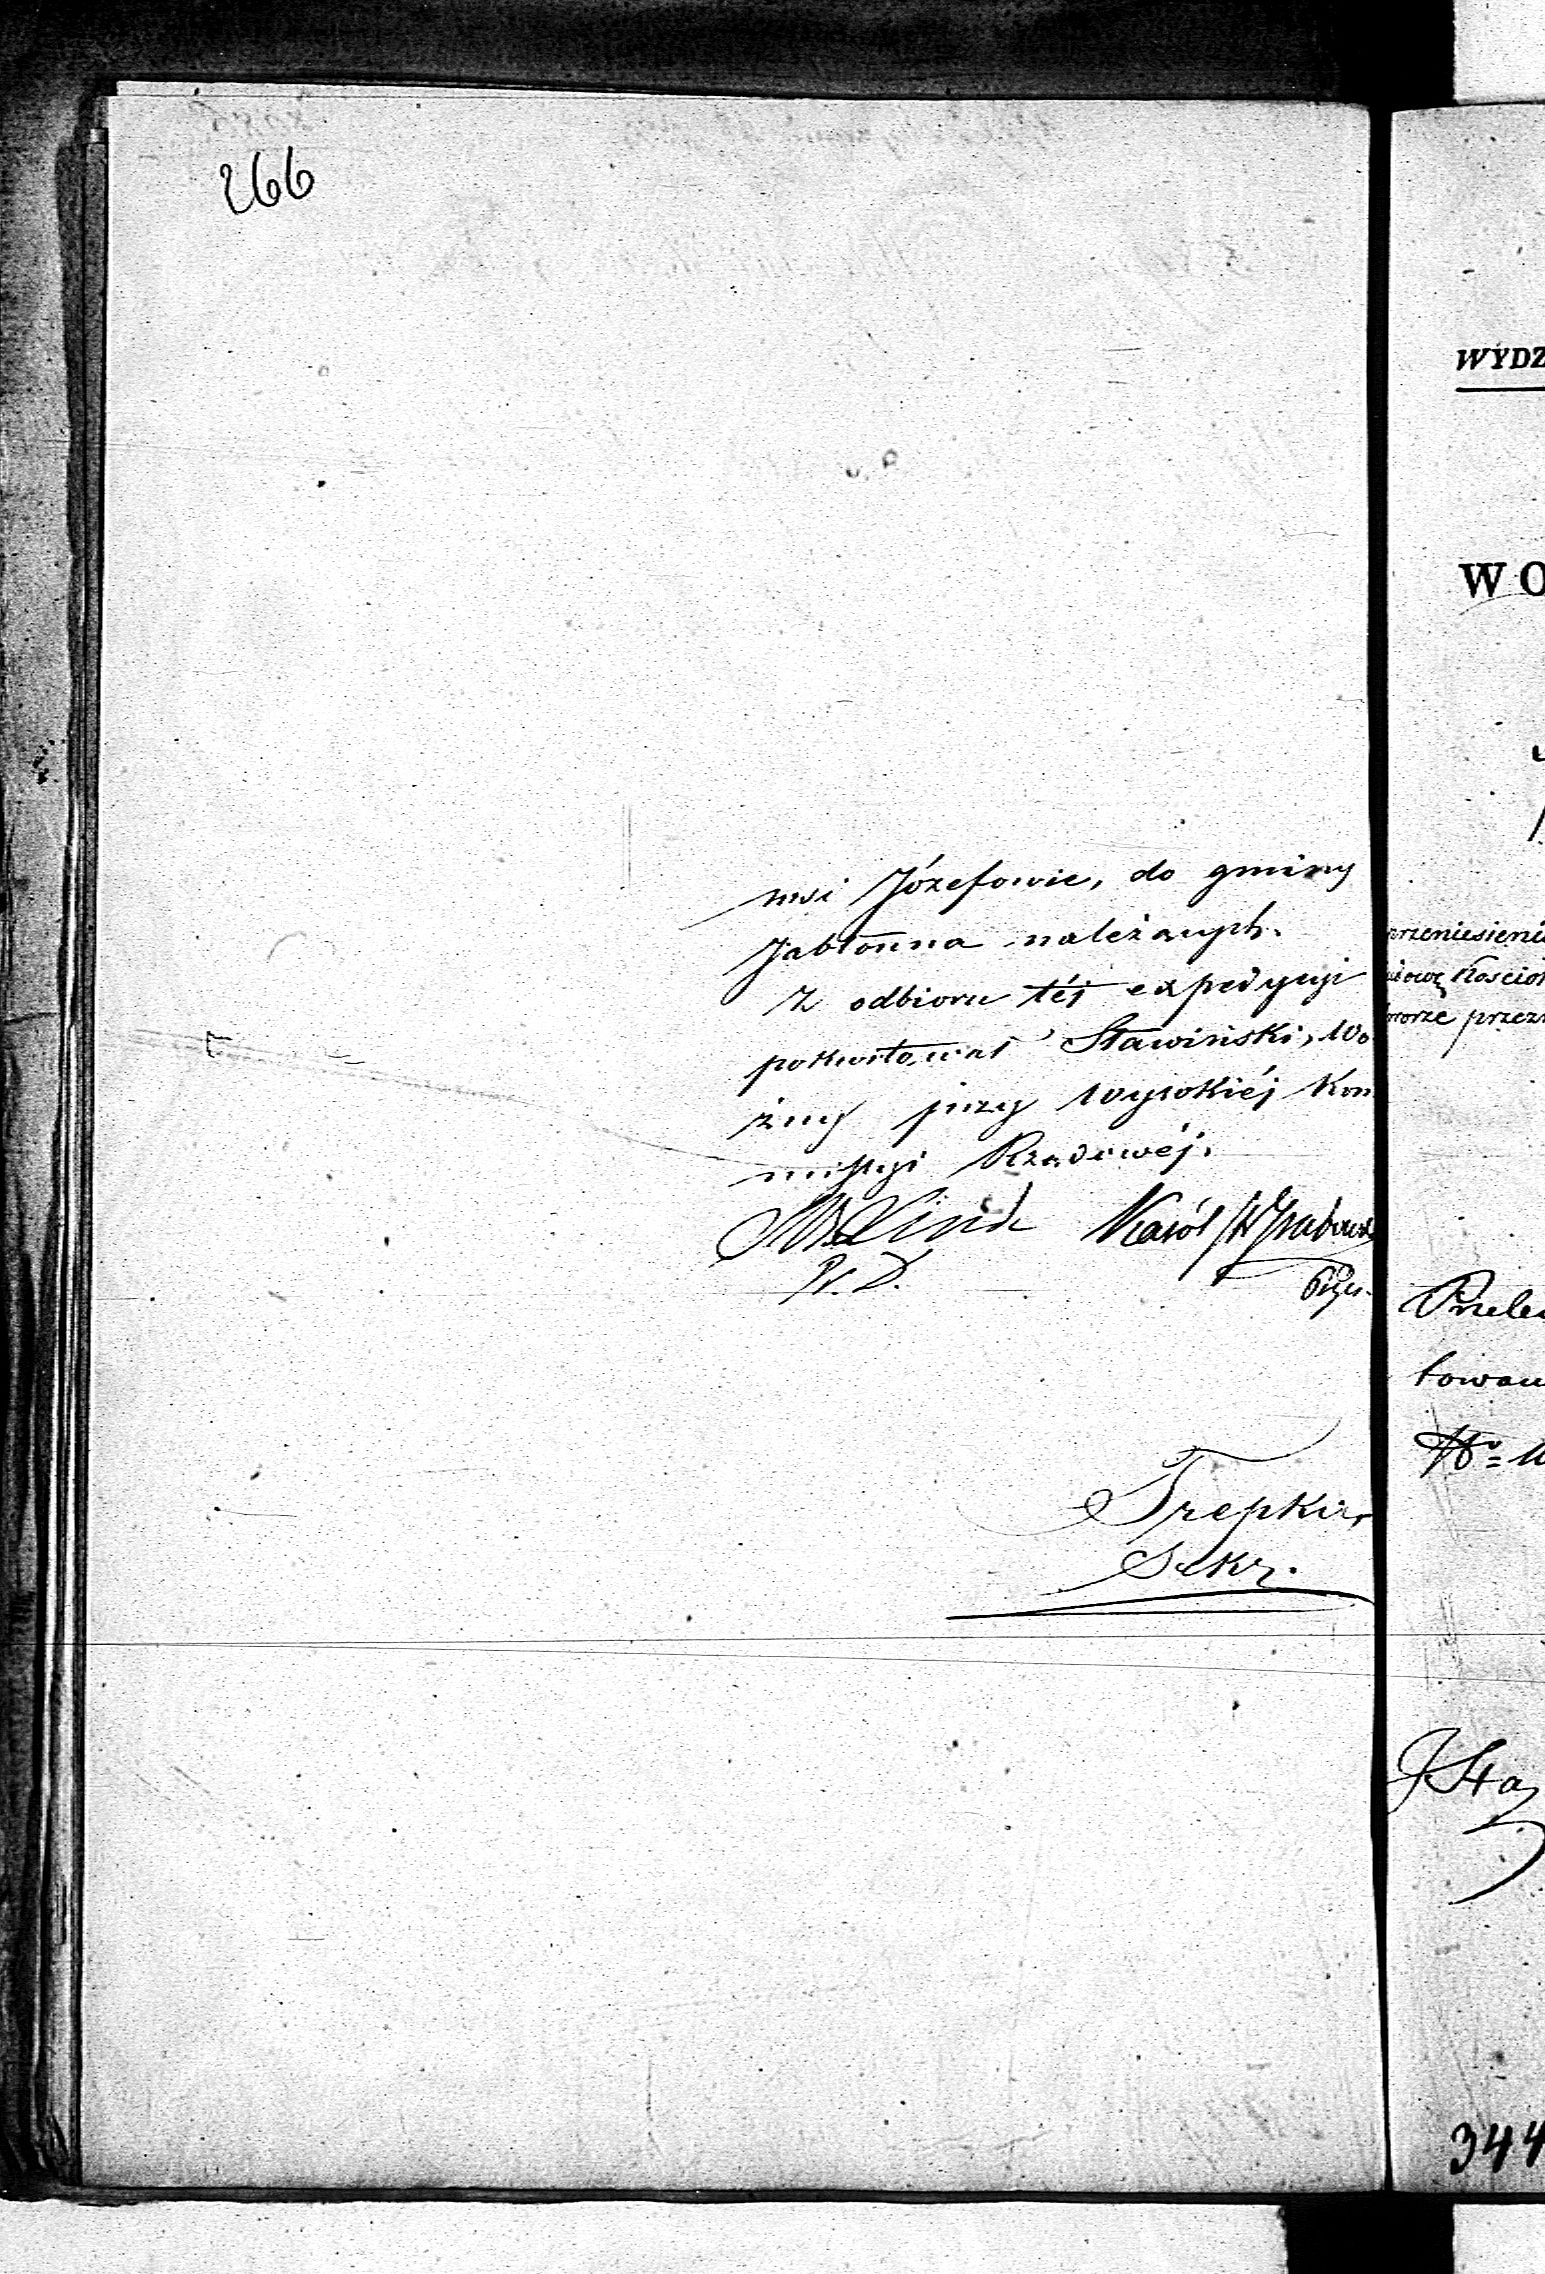 266
wsi Józefowie, do gminy
Jabłonna należących.
Z odbioru téj expedycyi
pokwitował Stawiński, Wo
źny przy Wysokiéj Kom
missyi Rządowéj.
Karól
Pr. D.
Trepka,
Sekr.
WYDZ
WO
rzeniesieni
Kościoł
przez
towan
344